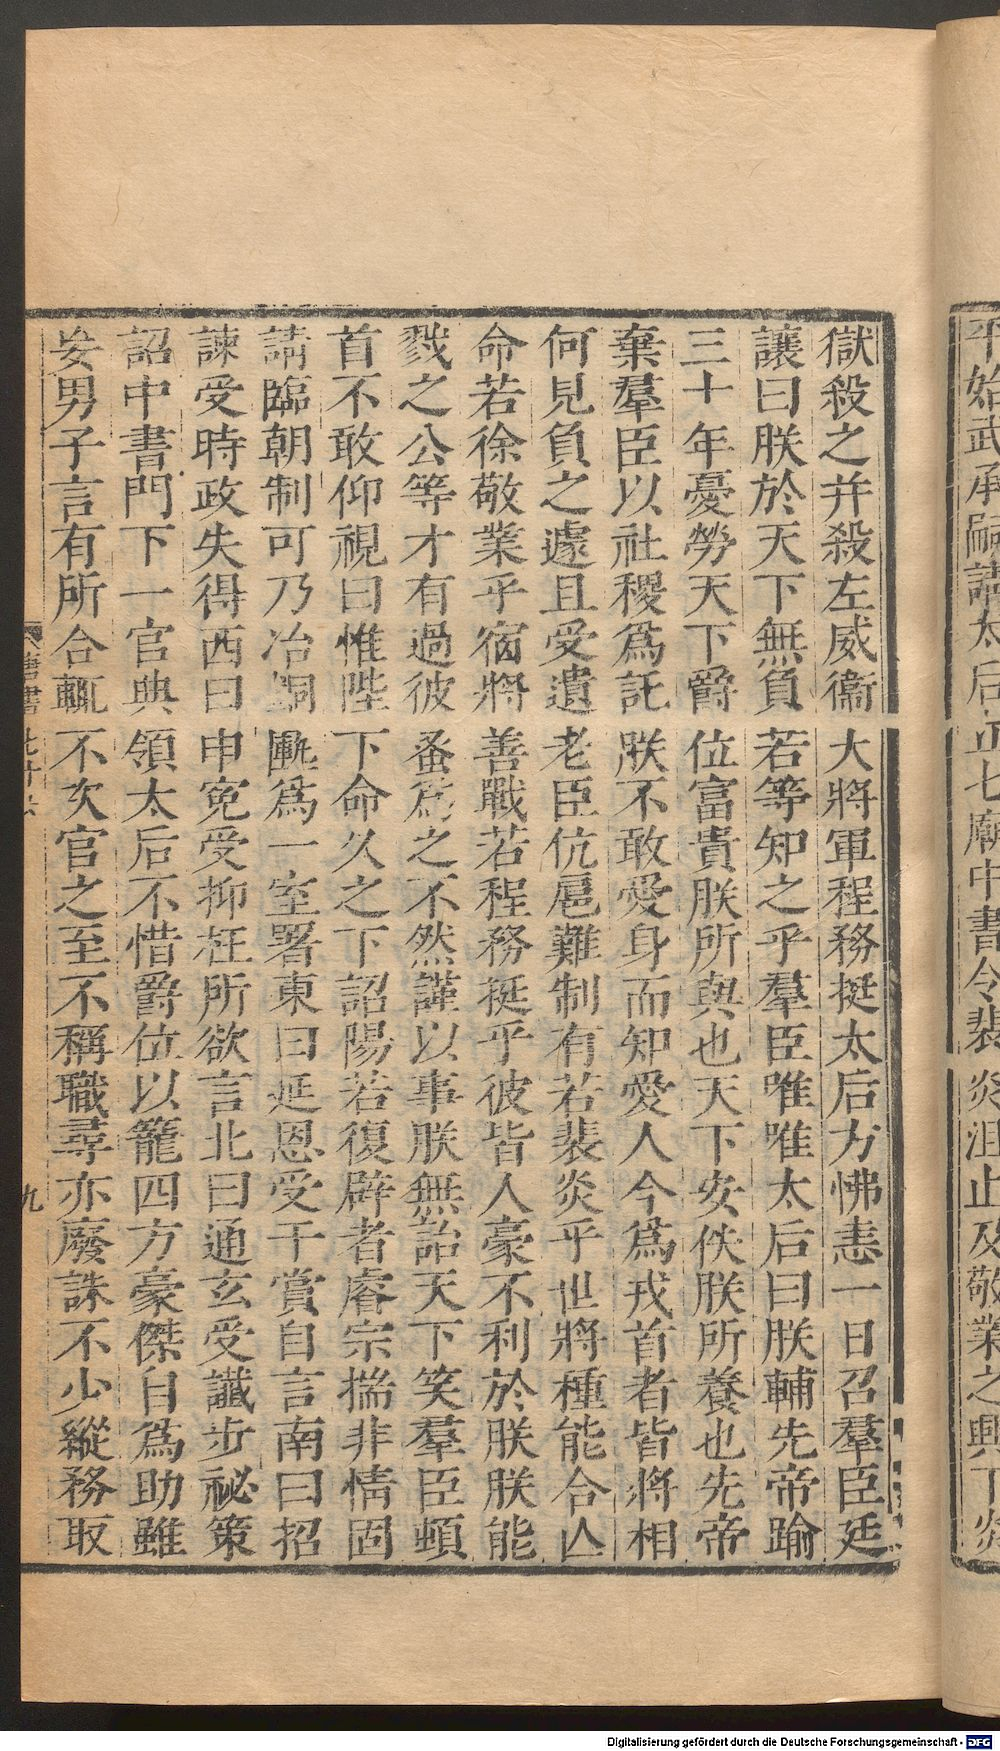 平始武承嗣請太后立七廟中書令裴炎沮止及敬業之興下炎
獄殺之并殺左威衞大將軍程務挺太后方怫恚一日召羣臣廷
讓曰朕於天下無負若等知之乎羣臣唯唯太后曰朕輔先帝踰
三十年憂勞天下爵位富貴朕所與也天下安佚朕所養也先帝
棄羣臣以社稷爲託朕不敢愛身而知愛人今爲戎首者皆將相
何見負之遽且受遺老臣伉扈難制有若裴炎乎世將種能合亾
命若徐敬業乎宿將善戰若程務挺乎彼皆人豪不利於朕朕能
戮之公等才有過彼蚤爲之不然謹以事朕無詒天下笑羣臣頓
首不敢仰視曰惟陛下命久之下詔陽若復辟者睿宗揣非情固
請臨朝制可乃冶銅匭爲一室署東曰延恩受干賞自言南曰招
諫受時政失得西曰申冤受抑枉所欲言北曰通玄受讖步祕策
詔中書門下一官典領太后不惜爵位以籠四方豪傑自爲助雖
妄男子言有所合輒不次官之至不稱職尋亦廢誅不少縱務取
唐書七十六
九
Digitalisierung gefördert durch die Deutsche Forschungsgemeinschaft - DFG